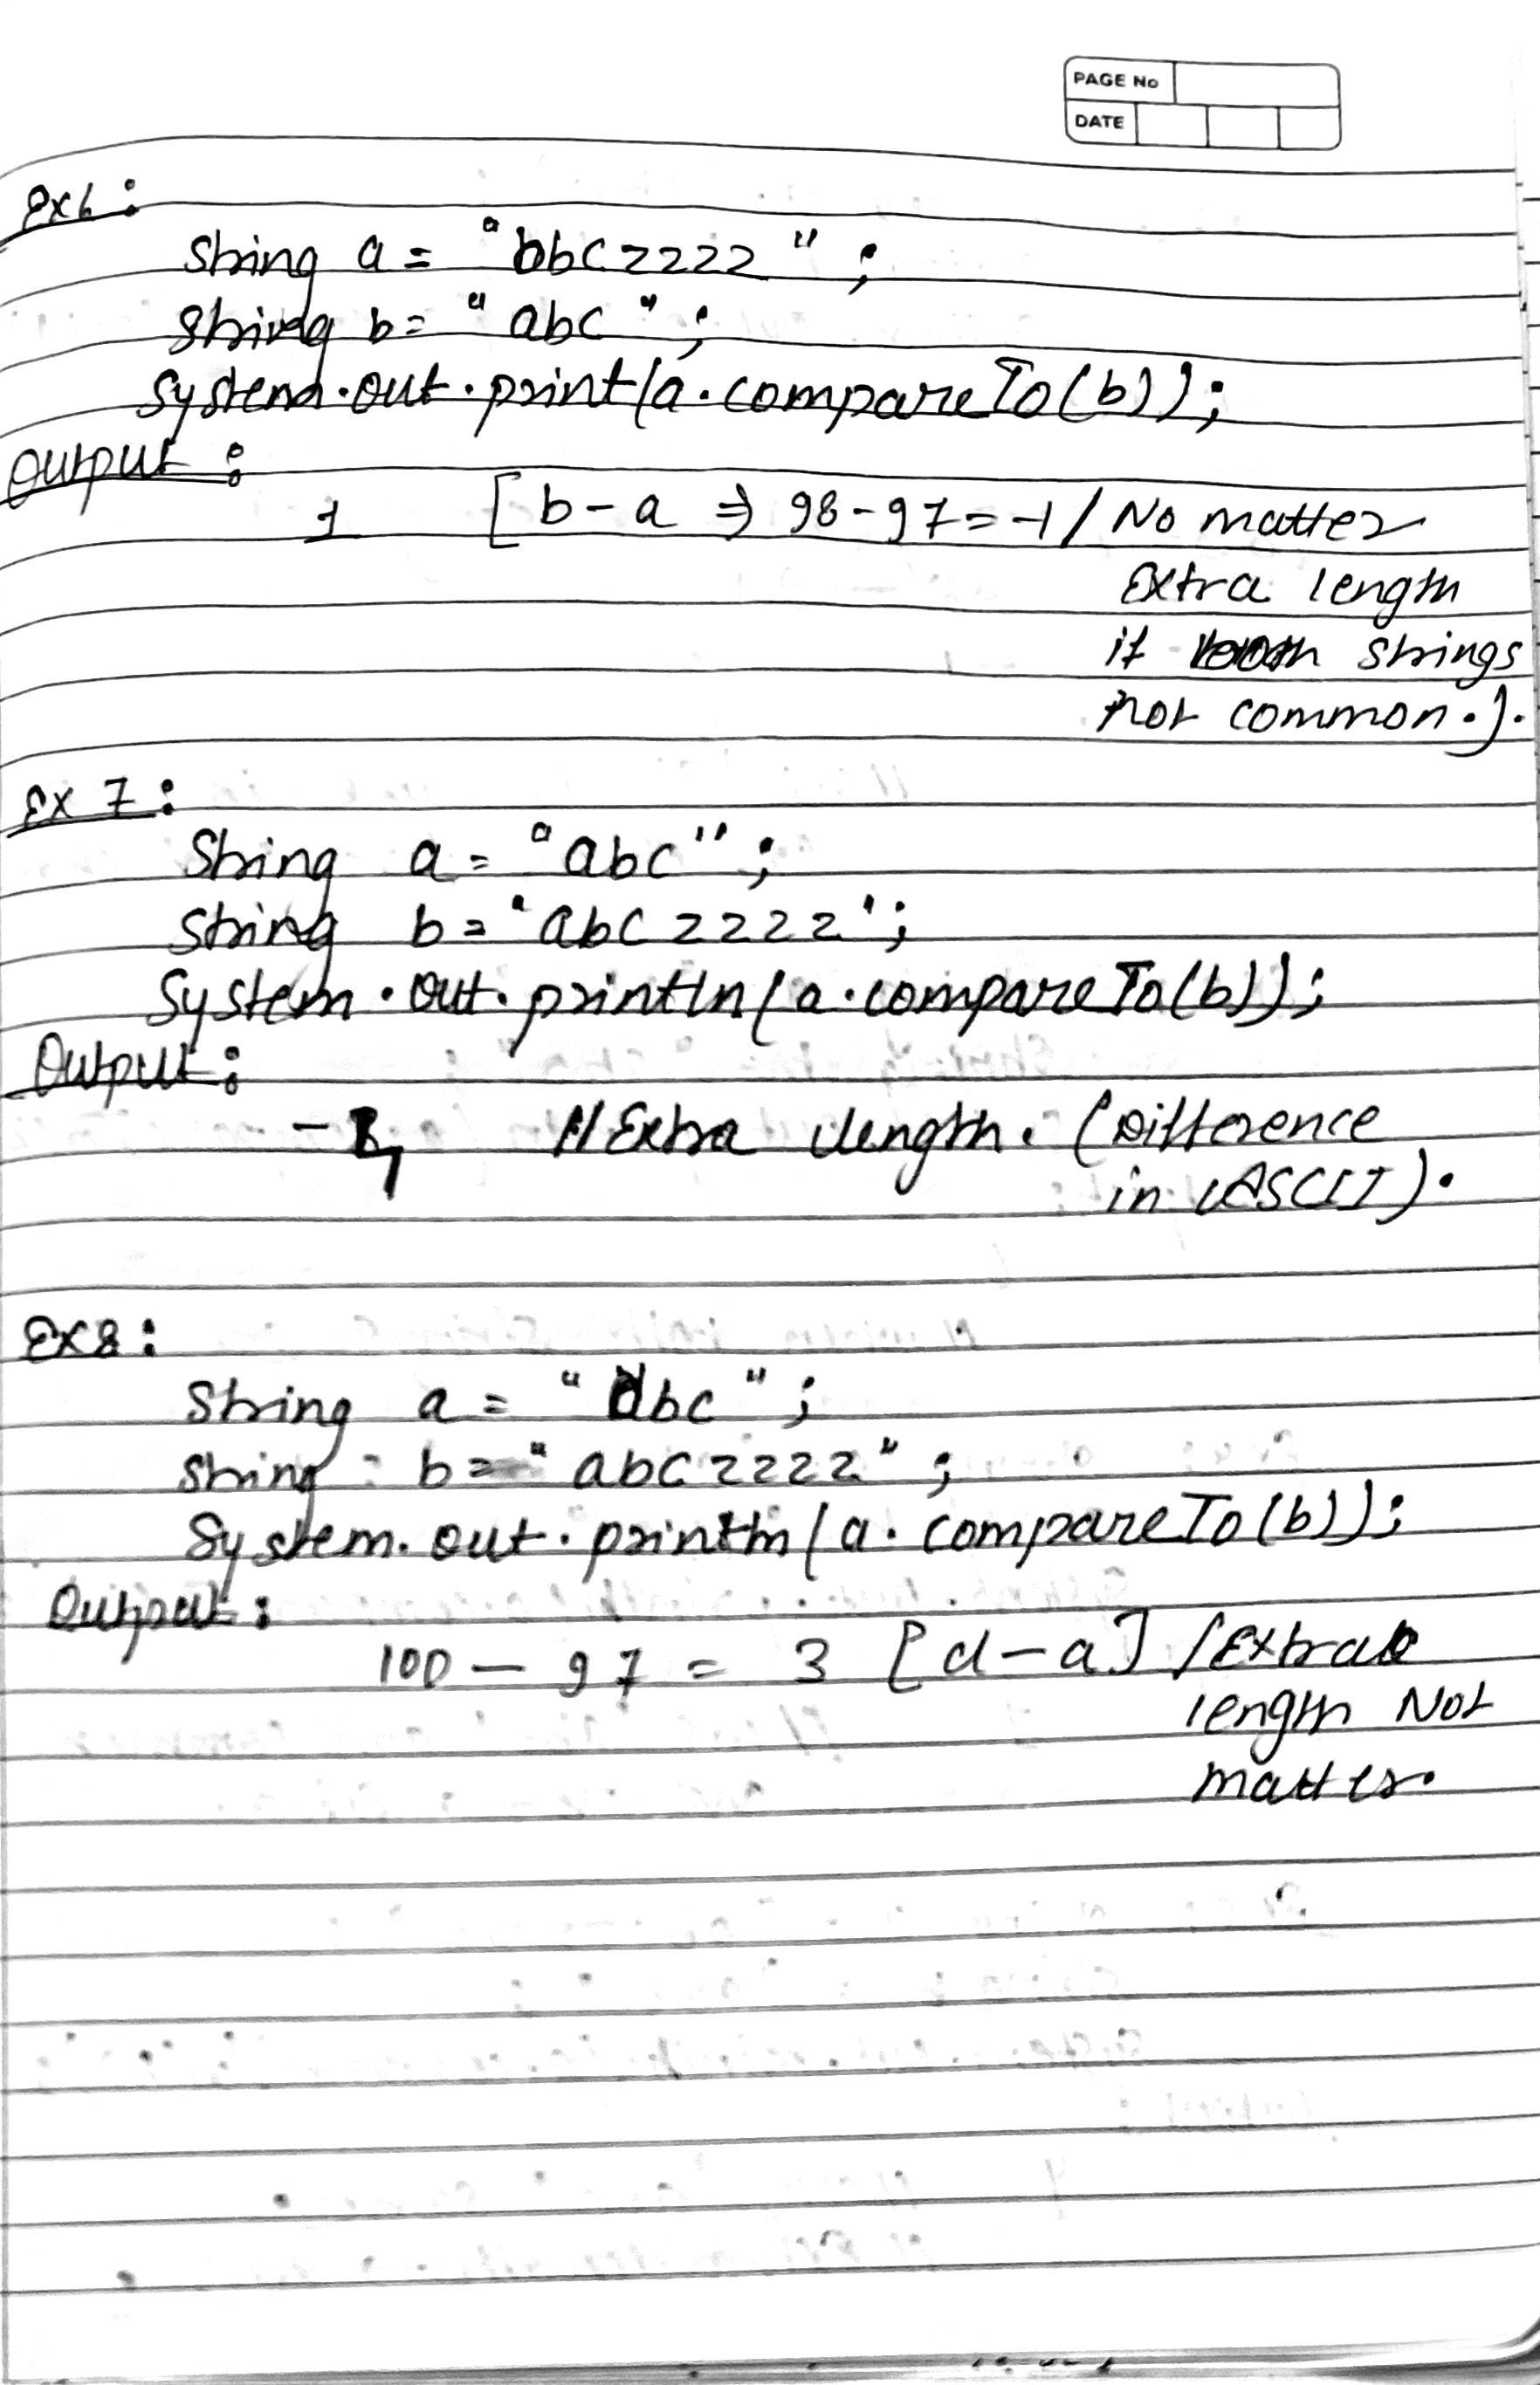 PAGE No
DATE
Ex6:
String a = "bbczzzz";
String b = "abc";
System.out.print(a.compareTo(b));
Output:
1 [b-a ⇒ 98-97=-1/No matter
Extra length
if both strings
not common.].
Ex 7:
String a = "abc";
String b = "abczzzz";
System.out.println(a.compareTo(b));
Output:
-4 //Extra length. (Difference
in ASCII).
Ex8:
String a = "dbc";
String b = "abczzzz";
System.out.println(a.compareTo(b));
Output:
100 - 97 = 3 [d-a] /Extra
length Not
matter.